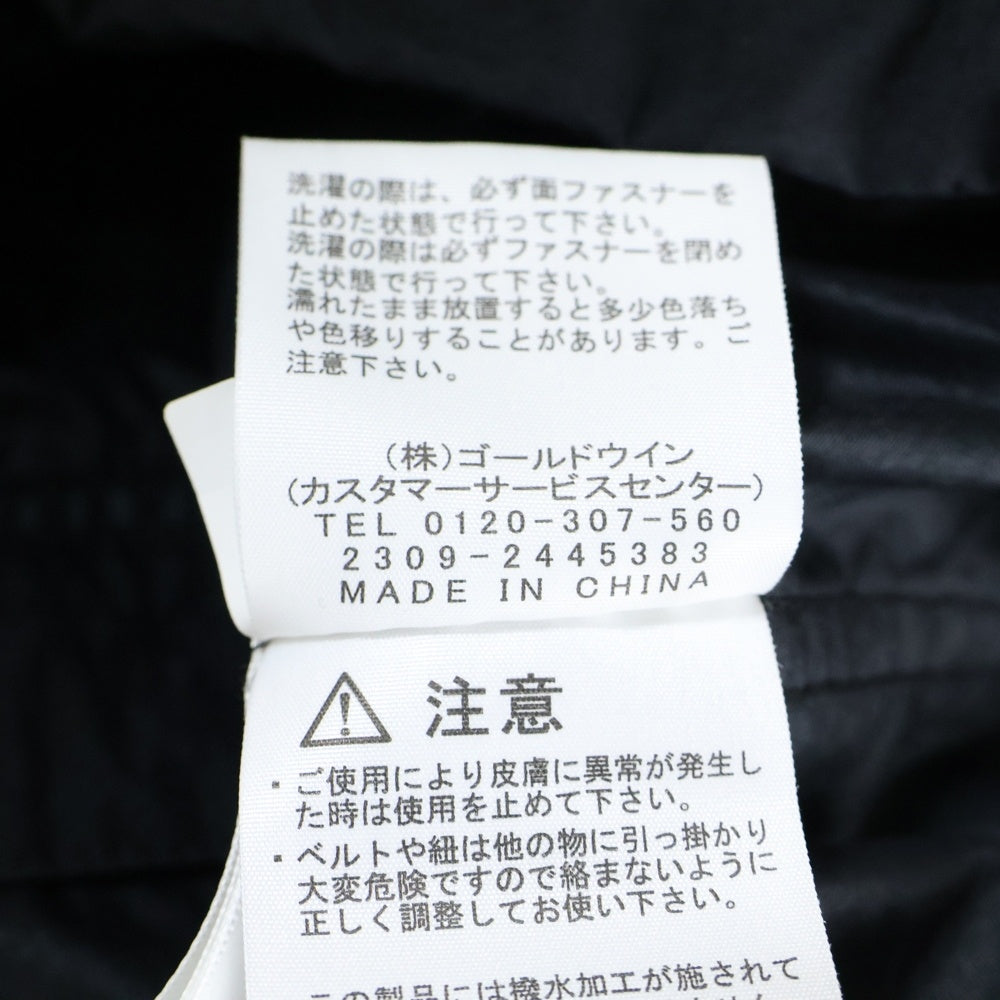 洗濯の際は、必ず面ファスナーを
止めた状態で行って下さい。
洗濯の際は必ずファスナーを閉め
た状態で行って下さい。
濡れたまま放置すると多少色落ち
や色移りすることがあります。ご
注意下さい。
(株)ゴールドウイン
(カスタマーサービスセンター)
TEL 0120-307-560
2309-2445383
MADE IN CHINA
注意
・ご使用により皮膚に異常が発生し
た時は使用を止めて下さい。
・ベルトや紐は他の物に引っ掛かり
大変危険ですので絡まないように
正しく調整してお使い下さい。
この製品には撥水加工が施されて